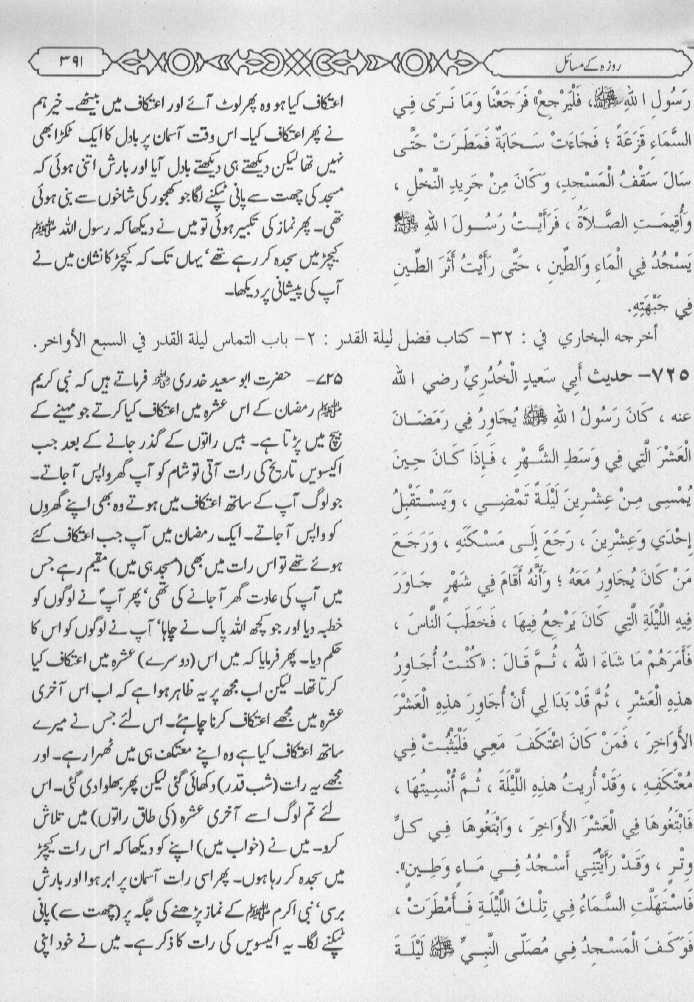 روزہ کے مسائل
۳۹۱
رَسُولِ اللهِ ﷺ، فَلْيَرْجِعْ» فَرَجَعْنَا وَمَا نَرَى فِي
السَّمَاءِ قَزَعَةً ؛ فَجَاءَتْ سَحَابَةٌ فَمَطَرَتْ حَتَّى
سَالَ سَقْفُ الْمَسْجِدِ، وَكَانَ مِنْ جَرِيدِ النَّخْلِ ،
وَأُقِيمَتِ الصَّلاَةُ ، فَرَأَيْتُ رَسُولَ اللهِ ﷺ
يَسْجُدُ فِي الْمَاءِ وَالطِّينِ ، حَتَّى رَأَيْتُ أَثَرَ الطِّينِ
فِي جَبْهَتِهِ.
اعتکاف کیا ہو وہ پھر لوٹ آئے اور اعتکاف میں بیٹھے۔ خیر ہم
نے پھر اعتکاف کیا۔ اس وقت آسمان پر بادل کا ایک ٹکڑا بھی
نہیں تھا لیکن دیکھتے ہی دیکھتے بادل آیا اور بارش اتنی ہوئی کہ
مسجد کی چھت سے پانی ٹپکنے لگا جو کھجور کی شاخوں سے بنی ہوئی
تھی۔ پھر نماز کی تکبیر ہوئی تو میں نے دیکھا کہ رسول اللہ ﷺ
کیچڑ میں سجدہ کر رہے تھے‘ یہاں تک کہ کیچڑ کا نشان میں نے
آپ کی پیشانی پر دیکھا۔
أخرجه البخاري في : ٣٢- كتاب فضل ليلة القدر : ٢- باب التماس ليلة القدر في السبع الأواخر.
٧٢٥- حديث أَبِي سَعِيدٍ الْخُدْرِيِّ رضي الله
عنه ، كَانَ رَسُولُ اللهِ ﷺ يُجَاوِرُ فِي رَمَضَانَ
الْعَشْرَ الَّتِي فِي وَسَطِ الشَّهْرِ ، فَإِذَا كَانَ حِينَ
يُمْسِي مِنْ عِشْرِينَ لَيْلَةً تَمْضِي ، وَيَسْتَقْبِلُ
إِحْدَي وَعِشْرِينَ ، رَجَعَ إِلَى مَسْكَنَهِ ، وَرَجَعَ
مَنْ كَانَ يُجَاوِرُ مَعَهُ ؛ وَأَنَّهُ أَقَامَ فِي شَهْرٍ جَاوَرَ
فِيهِ اللَّيْلَةَ الَّتِي كَانَ يَرْجِعُ فِيهَا ، فَخَطَبَ النَّاسَ ،
فَأَمَرَهُمْ مَا شَاءَ اللهُ ، ثُمَّ قَالَ : «كُنْتُ أُجَاوِرُ
هذِهِ الْعَشْرِ ، ثُمَّ قَدْ بَدَا لِي أَنْ أُجَاوِرَ هذِهِ الْعَشْرَ
الأَوَاخِرَ ، فَمَنْ كَانَ اعْتَكَفَ مَعِي فَلْيَثْبُتْ فِي
مُعْتَكَفِهِ ، وَقَدْ أُرِيتُ هذِهِ اللَّيْلَةَ ، ثُمَّ أُنْسِيتُهَا ،
فَابْتَغُوهَا فِي الْعَشْرَ الأَوَاخِرَ ، وَابْتَغُوهَا فِي كلِّ
وِتْرٍ ، وَقَدْ رَأَيْتُنِي أَسْجُدُ فِي مَاءٍ وَطِينٍ».
فَاسْتَهَلَّتِ السَّمَاءُ فِي تِلْكَ اللَّيْلَةِ فَأَمْطَرَتْ ،
فَوَكَفَ الْمَسْجِدُ فِي مُصَلَّى النَّبِيِّ ﷺ لَيْلَةَ
۷۲۵- حضرت ابو سعید خدری رضی اللہ عنہ فرماتے ہیں کہ نبی کریم
ﷺ رمضان کے اس عشرہ میں اعتکاف کیا کرتے جو مہینے کے
بیچ میں پڑتا ہے۔ بیس راتوں کے گذر جانے کے بعد جب
اکیسویں تاریخ کی رات آتی تو شام کو آپ گھر واپس آ جاتے۔
جو لوگ آپ کے ساتھ اعتکاف میں ہوتے وہ بھی اپنے گھروں
کو واپس آ جاتے۔ ایک رمضان میں آپ جب اعتکاف کئے
ہوئے تھے تو اس رات میں بھی (مسجد ہی میں) مقیم رہے جس
میں آپ کی عادت گھر آ جانے کی تھی‘ پھر آپؐ نے لوگوں کو
خطبہ دیا اور جو کچھ اللہ پاک نے چاہا‘ آپ نے لوگوں کو اس کا
حکم دیا۔ پھر فرمایا کہ میں اس (دوسرے) عشرہ میں اعتکاف کیا
کرتا تھا۔ لیکن اب مجھ پر یہ ظاہر ہوا ہے کہ اب اس آخری
عشرہ میں مجھے اعتکاف کرنا چاہئے۔ اس لئے جس نے میرے
ساتھ اعتکاف کیا ہے وہ اپنے معتکف ہی میں ٹھہرا رہے۔ اور
مجھے یہ رات (شب قدر) دکھائی گئی لیکن پھر بھلوا دی گئی۔ اس
لئے تم لوگ اسے آخری عشرہ (کی طاق راتوں) میں تلاش
کرو۔ میں نے (خواب میں) اپنے کو دیکھا کہ اس رات کیچڑ
میں سجدہ کر رہا ہوں۔ پھر اسی رات آسمان پر ابر ہوا اور بارش
برسی‘ نبی اکرم ﷺ کے نماز پڑھنے کی جگہ پر (چھت سے) پانی
ٹپکنے لگا۔ یہ اکیسویں کی رات کا ذکر ہے۔ میں نے خود اپنی